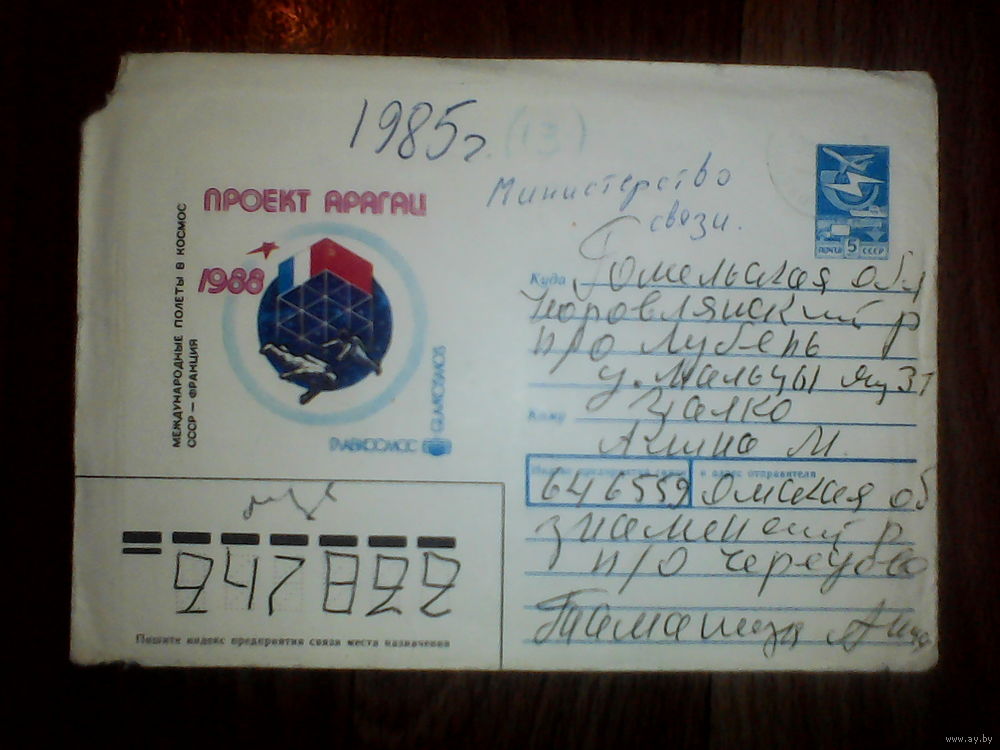 1985г. (13)
Министерство
связи.
ПРОЕКТ АРАГАЦ
1988
МЕЖДУНАРОДНЫЕ ПОЛЕТЫ В КОСМОС
СССР — ФРАНЦИЯ
ГЛАВКОСМОС
GLAVKOSMOS
ПОЧТА 5 СССР
Куда Гомельская обл
Наровлянский р
п/о Лубень
Кому
Алина М.
Индекс предприятия связи и адрес отправителя
646559 Омская об
Знаменский р
п/о
247822
Пишите индекс предприятия связи места назначения
www.ay.by